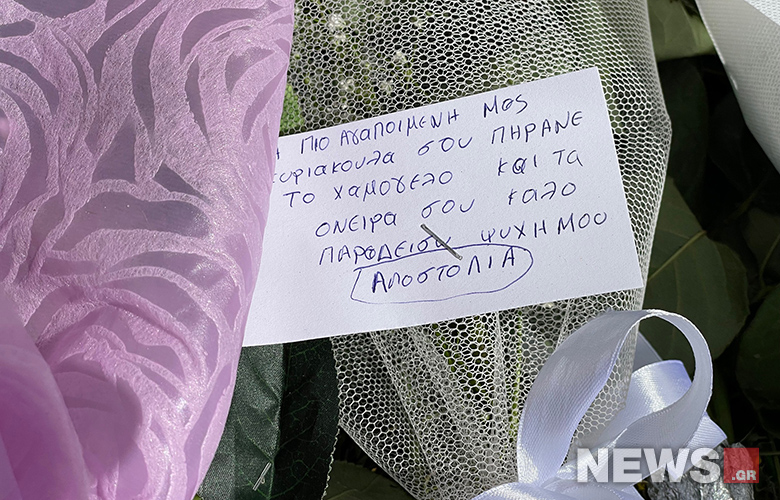 Η ΠΙΟ ΑγΑΠΟΙΜΕΝΗ ΜΑS
ΚυΡΙΑΚΟΥΛΑ ΣΟυ ΠΗΡΑΝΕ
ΤΟ ΧΑΜΟΓΕΛΟ ΚΑΙ ΤΑ
ΟΝΕΙΡΑ ΣΟυ ΚΑΛΟ
ΠΑΡΑΔΕΙΣΟ ΨΥΧΗ ΜΟΥ
ΑΠΟΣΤΟΛΙΑ
NEWS.GR